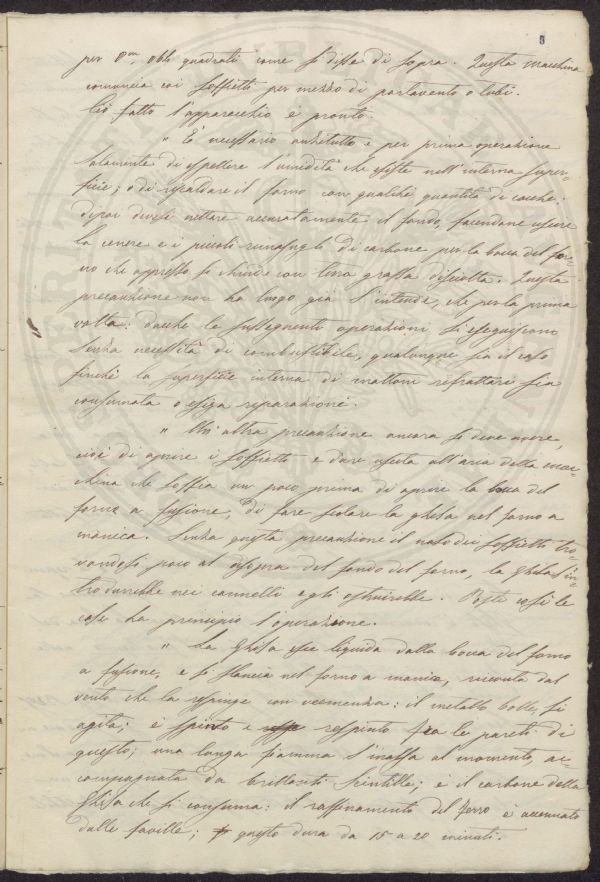 5
per 0,m 066 quadrati come si disse di sopra. Questa macchina
comunica coi soffietti per mezzo di portavento o tubi.
Ciò fatto l'apparecchio è pronto.
" È necessario anzitutto e per prima operazione
solamente di espellere l'umidità che esiste nell'interna super-
ficie; o di riscaldare il forno con qualche quantità di cocke.
dipoi devesi nettare accuratamente il fondo, facendone uscire
la cenere e i piccoli rimasugli di carbone per la bocca del for-
no che appresso si chiude con terra grassa disciolta. Questa
precauzione non ha luogo già s'intende, che per la prima
volta: dacchè le susseguenti operazioni si eseguiscono
senza necessità di combustibile, qualunque sia il caso
finchè la superficie interna di mattoni refrattari sia
consumata o esiga riparazioni.
" Un'altra precauzione ancora si deve avere,
cioè di aprire i soffietti e dare uscita all'aria della mac-
china che soffia un poco prima di aprire la bocca del
forno a fusione, di fare scolare la ghisa nel forno a
manica. Senza questa precauzione il naso dei soffietti tro-
vandosi poco al disopra del fondo del forno, la ghisa s'in-
trodurrebbe nei cannelli e gli ostruirebbe. Poste così le
cose ha principio l'operazione.
" La Ghisa esce liquida dalla bocca del forno
a fusione, e si slancia nel forno a manica, ricevuta dal
vento che la respinge con veemenza: il metallo bolle, si
agita; è spinto e respinto fra le pareti di
questo; una lunga fiamma s'innalza al momento, ac-
compagnata da brillanti scintille; è il carbone della
Ghisa che si consuma: il raffinamento del ferro è accennato
dalle faville; questo dura da 15 a 20 minuti.